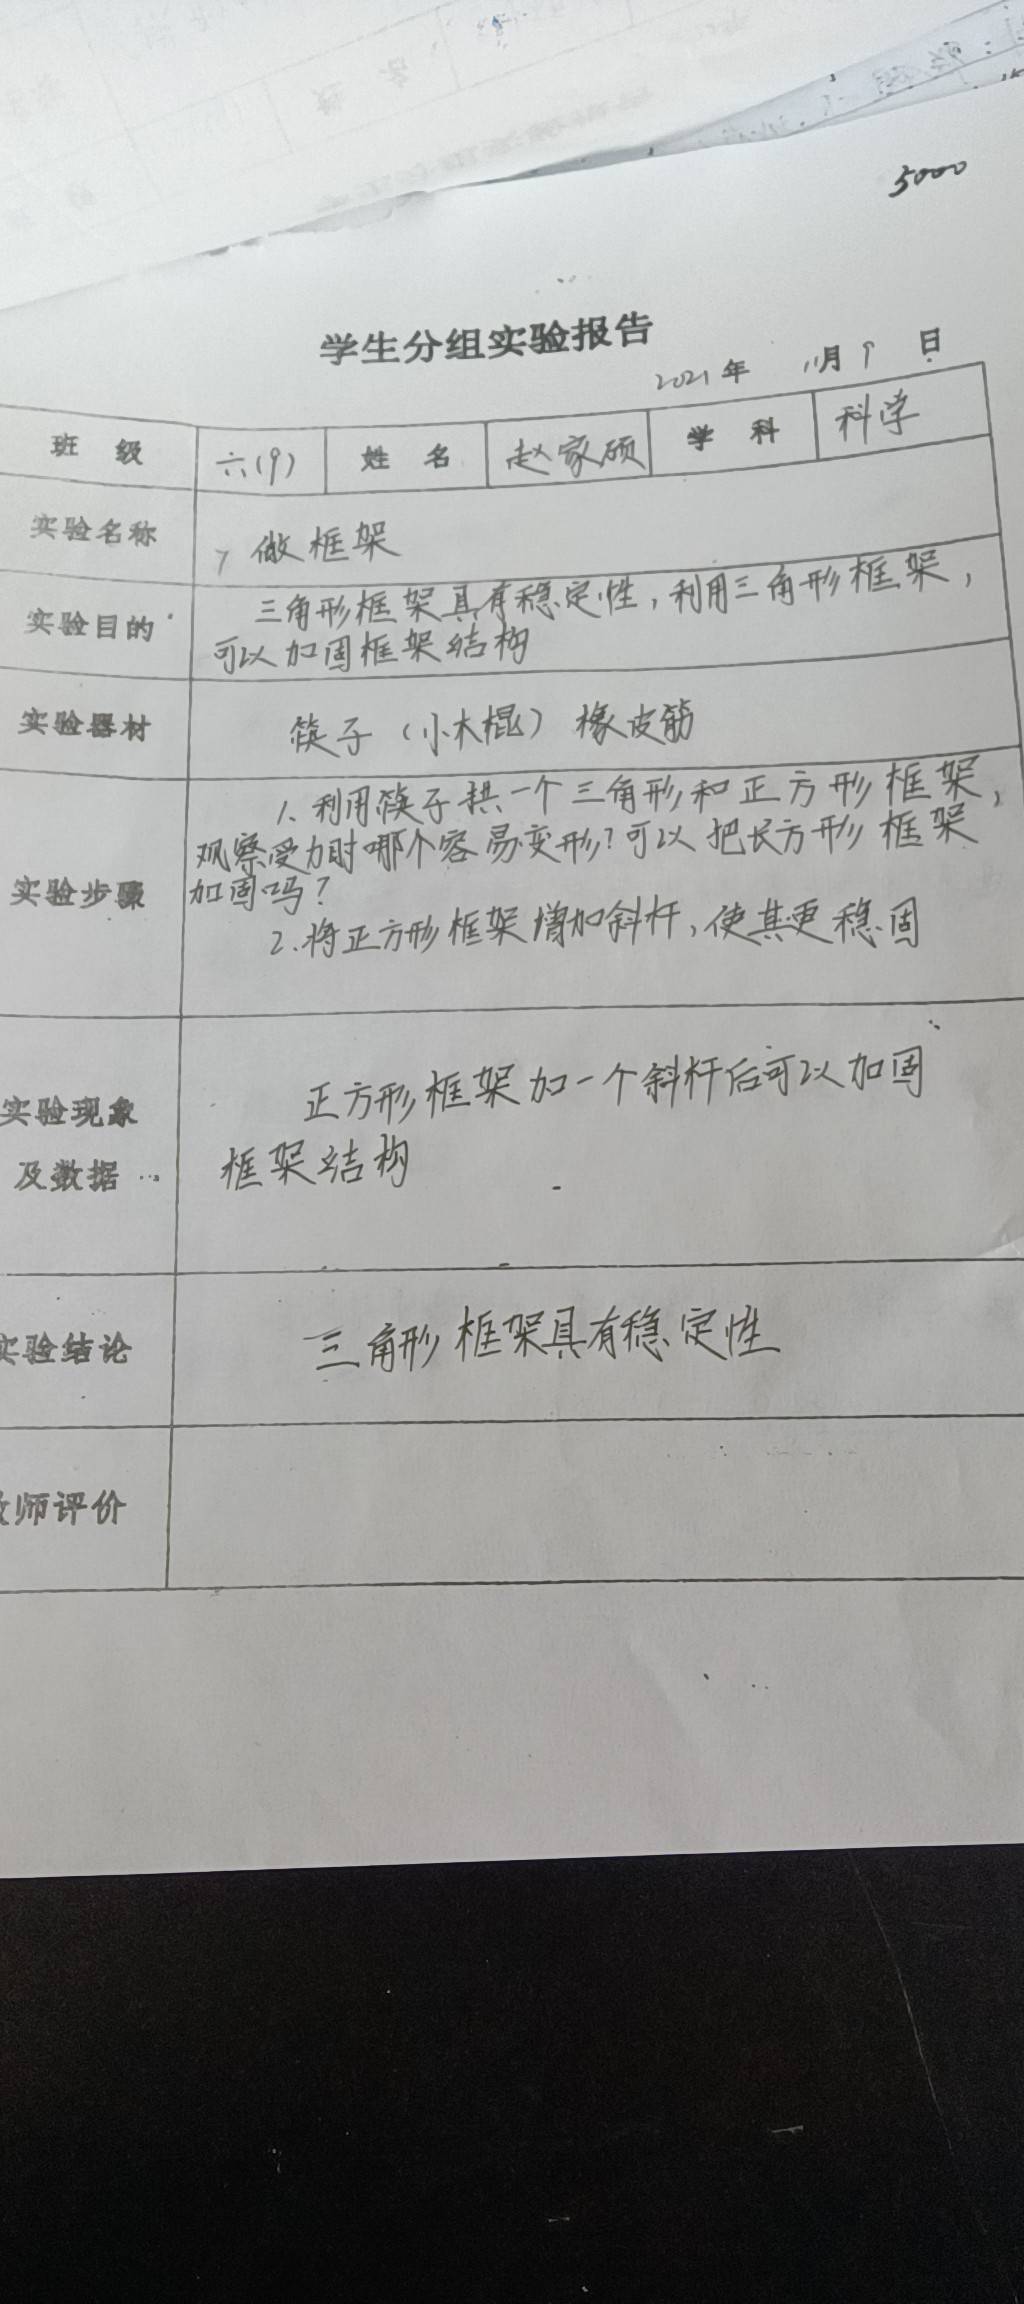 5000
学生分组实验报告
2021年 11月9日
班 级 六(9) 姓 名 赵家硕 学 科 科学
实验名称 7 做框架
实验目的 三角形框架具有稳定性，利用三角形框架，
可以加固框架结构
实验器材 筷子（小木棍）橡皮筋
实验步骤 1、利用筷子拱一个三角形和正方形框架，
观察受力时哪个容易变形？可以把长方形框架
加固吗？
2.将正方形框架增加斜杆，使其更稳固
实验现象
及数据
正方形框架加一个斜杆后可以加固
框架结构
实验结论 三角形框架具有稳定性
教师评价